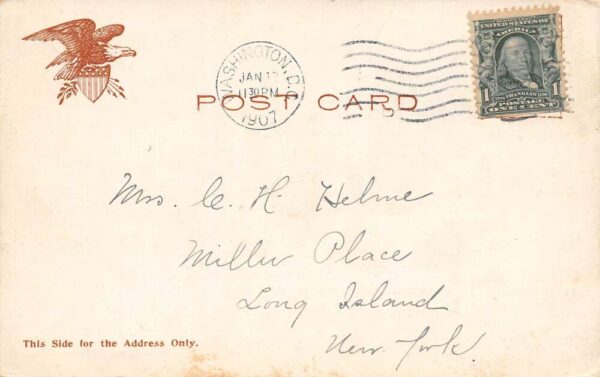 WASHINGTON, D.C.
JAN 17
1130PM
1907
POST CARD
D
UNITED STATES OF
AMERICA
1 1
FRANKLIN
POSTAGE
ONE CENT
Mrs. C. H. Helme
Miller Place
Long Island
New York.
This Side for the Address Only.